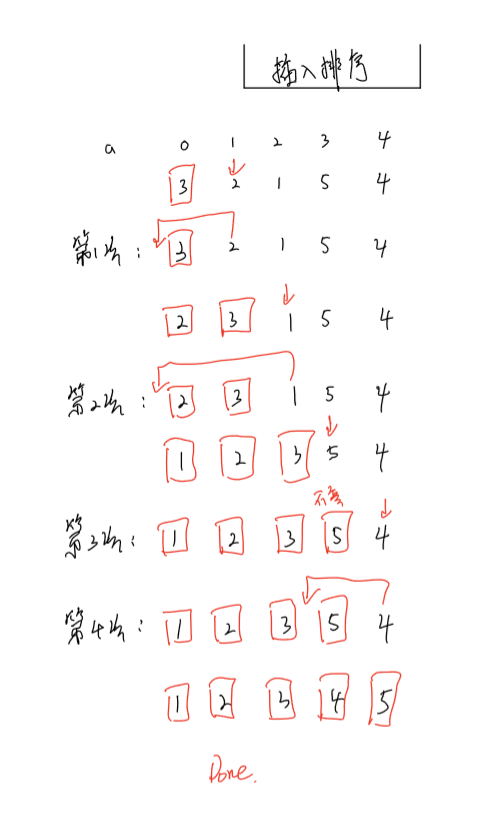 插入排序
a 0 1 2 3 4
3 2 1 5 4
第1次: 3 2 1 5 4
2 3 1 5 4
第2次: 2 3 1 5 4
1 2 3 5 4
不变
第3次: 1 2 3 5 4
第4次: 1 2 3 5 4
1 2 3 4 5
Done.